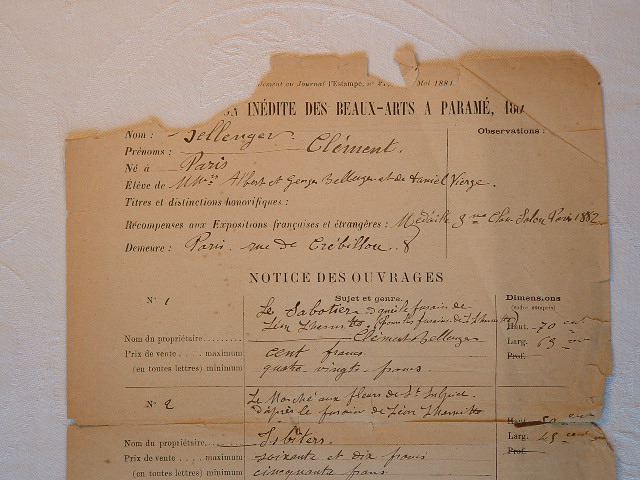 dement au Journal l'Estampe, n° Mai 1884.
INÉDITE DES BEAUX-ARTS A PARAMÉ, 188
Nom : Bellenger
Observations :
Prénoms : Clément.
Né à Paris
Élève de MM. Albert et Georges Bellenger et de Daniel Vierge.
Titres et distinctions honorifiques :
Récompenses aux Expositions françaises et étrangères : Médaille 3me Clas. Salon Paris 1882
Demeure : Paris. rue de Crébillon. 8
NOTICE DES OUVRAGES
N° 1
Sujet et genre.
Dimensions
(cadre compris)
Le Sabotier d'après le fusain de
Léon Lhermitte (pour les fusains de L. Lhermitte)
Haut. 70 cent
Nom du propriétaire Clément Bellenger
Larg. 63 cent
Prix de vente maximum cent francs
Prof.
(en toutes lettres) minimum quatre vingts francs.
N° 2
Le Marché aux fleurs de St Sulpice
d'après le fusain de Léon Lhermitte
Haut. cent
Nom du propriétaire
Larg. 45 cent
Prix de vente maximum soixante et dix francs
Prof.
(en toutes lettres) minimum cinquante francs